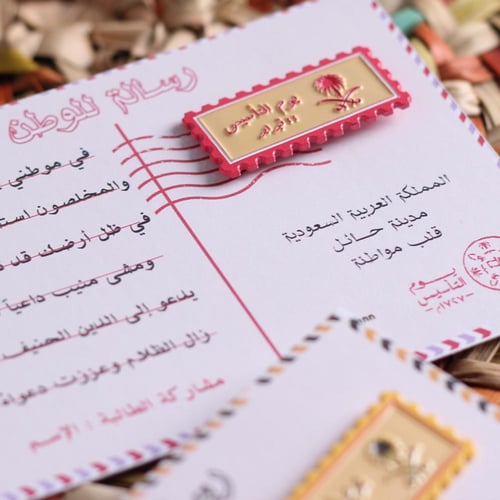 رسالة للوطن
في موطني
والمخلصون
في ظل أرضك قد
ومشى منيب داعياً
يدعو إلى الدين الحنيف
زال الظلام وعززت دعوة
مشاركة الطالبة : الإسم
يوم التأسيس
المملكة العربية السعودية
مدينة حائل
قلب مواطنة
يوم
التأسيس
١٧٢٧م